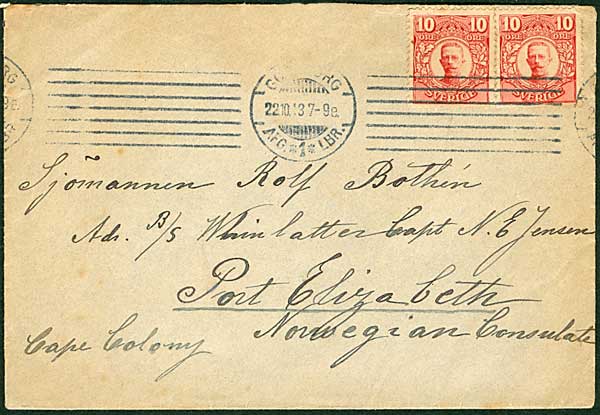 10 10 10 10
ÖRE ÖRE ÖRE ÖRE
SVERIGE SVERIGE
GÖTEBORG
22.10.13 7-9e.
AFG. *1* LBR.
Sjömannen Rolf Bothén
Adr. B/S Whinlatter Capt N. E Jensen
Port Elizabeth
Norwegian Consulate
Cape Colony